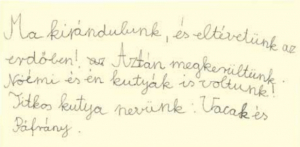 Ma kirándulunk, és eltévetünk az
erdőben! az Aztán megkerültünk.
Noémi és én kutyák is voltunk!
Titkos kutya nevünk: Vacak és
Páfrány.